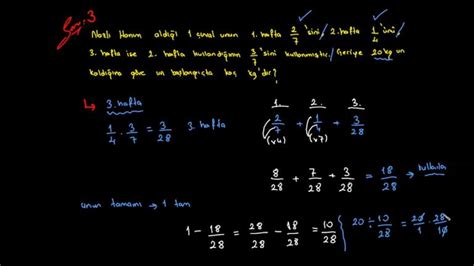 Soru.3
Nazlı Hanım aldığı 1 çuval unun 1. hafta 2/7 'sini, 2. hafta 1/4 'ünü,
3. hafta ise 2. hafta kullandığının 3/7 'sini kullanmıştır. Geriye 20 kg un
kaldığına göre un başlangıçta kaç kg'dır?
↳ 3. hafta
1/4 . 3/7 = 3/28 3. hafta
1. 2. 3.
2/7 + 1/4 + 3/28
(x4) (x7)
8/28 + 7/28 + 3/28 = 18/28 →
unun tamamı → 1 tam
1 - 18/28 = 28/28 - 18/28 = 10/28
20 ÷ 10/28 = 20/1 . 28/10